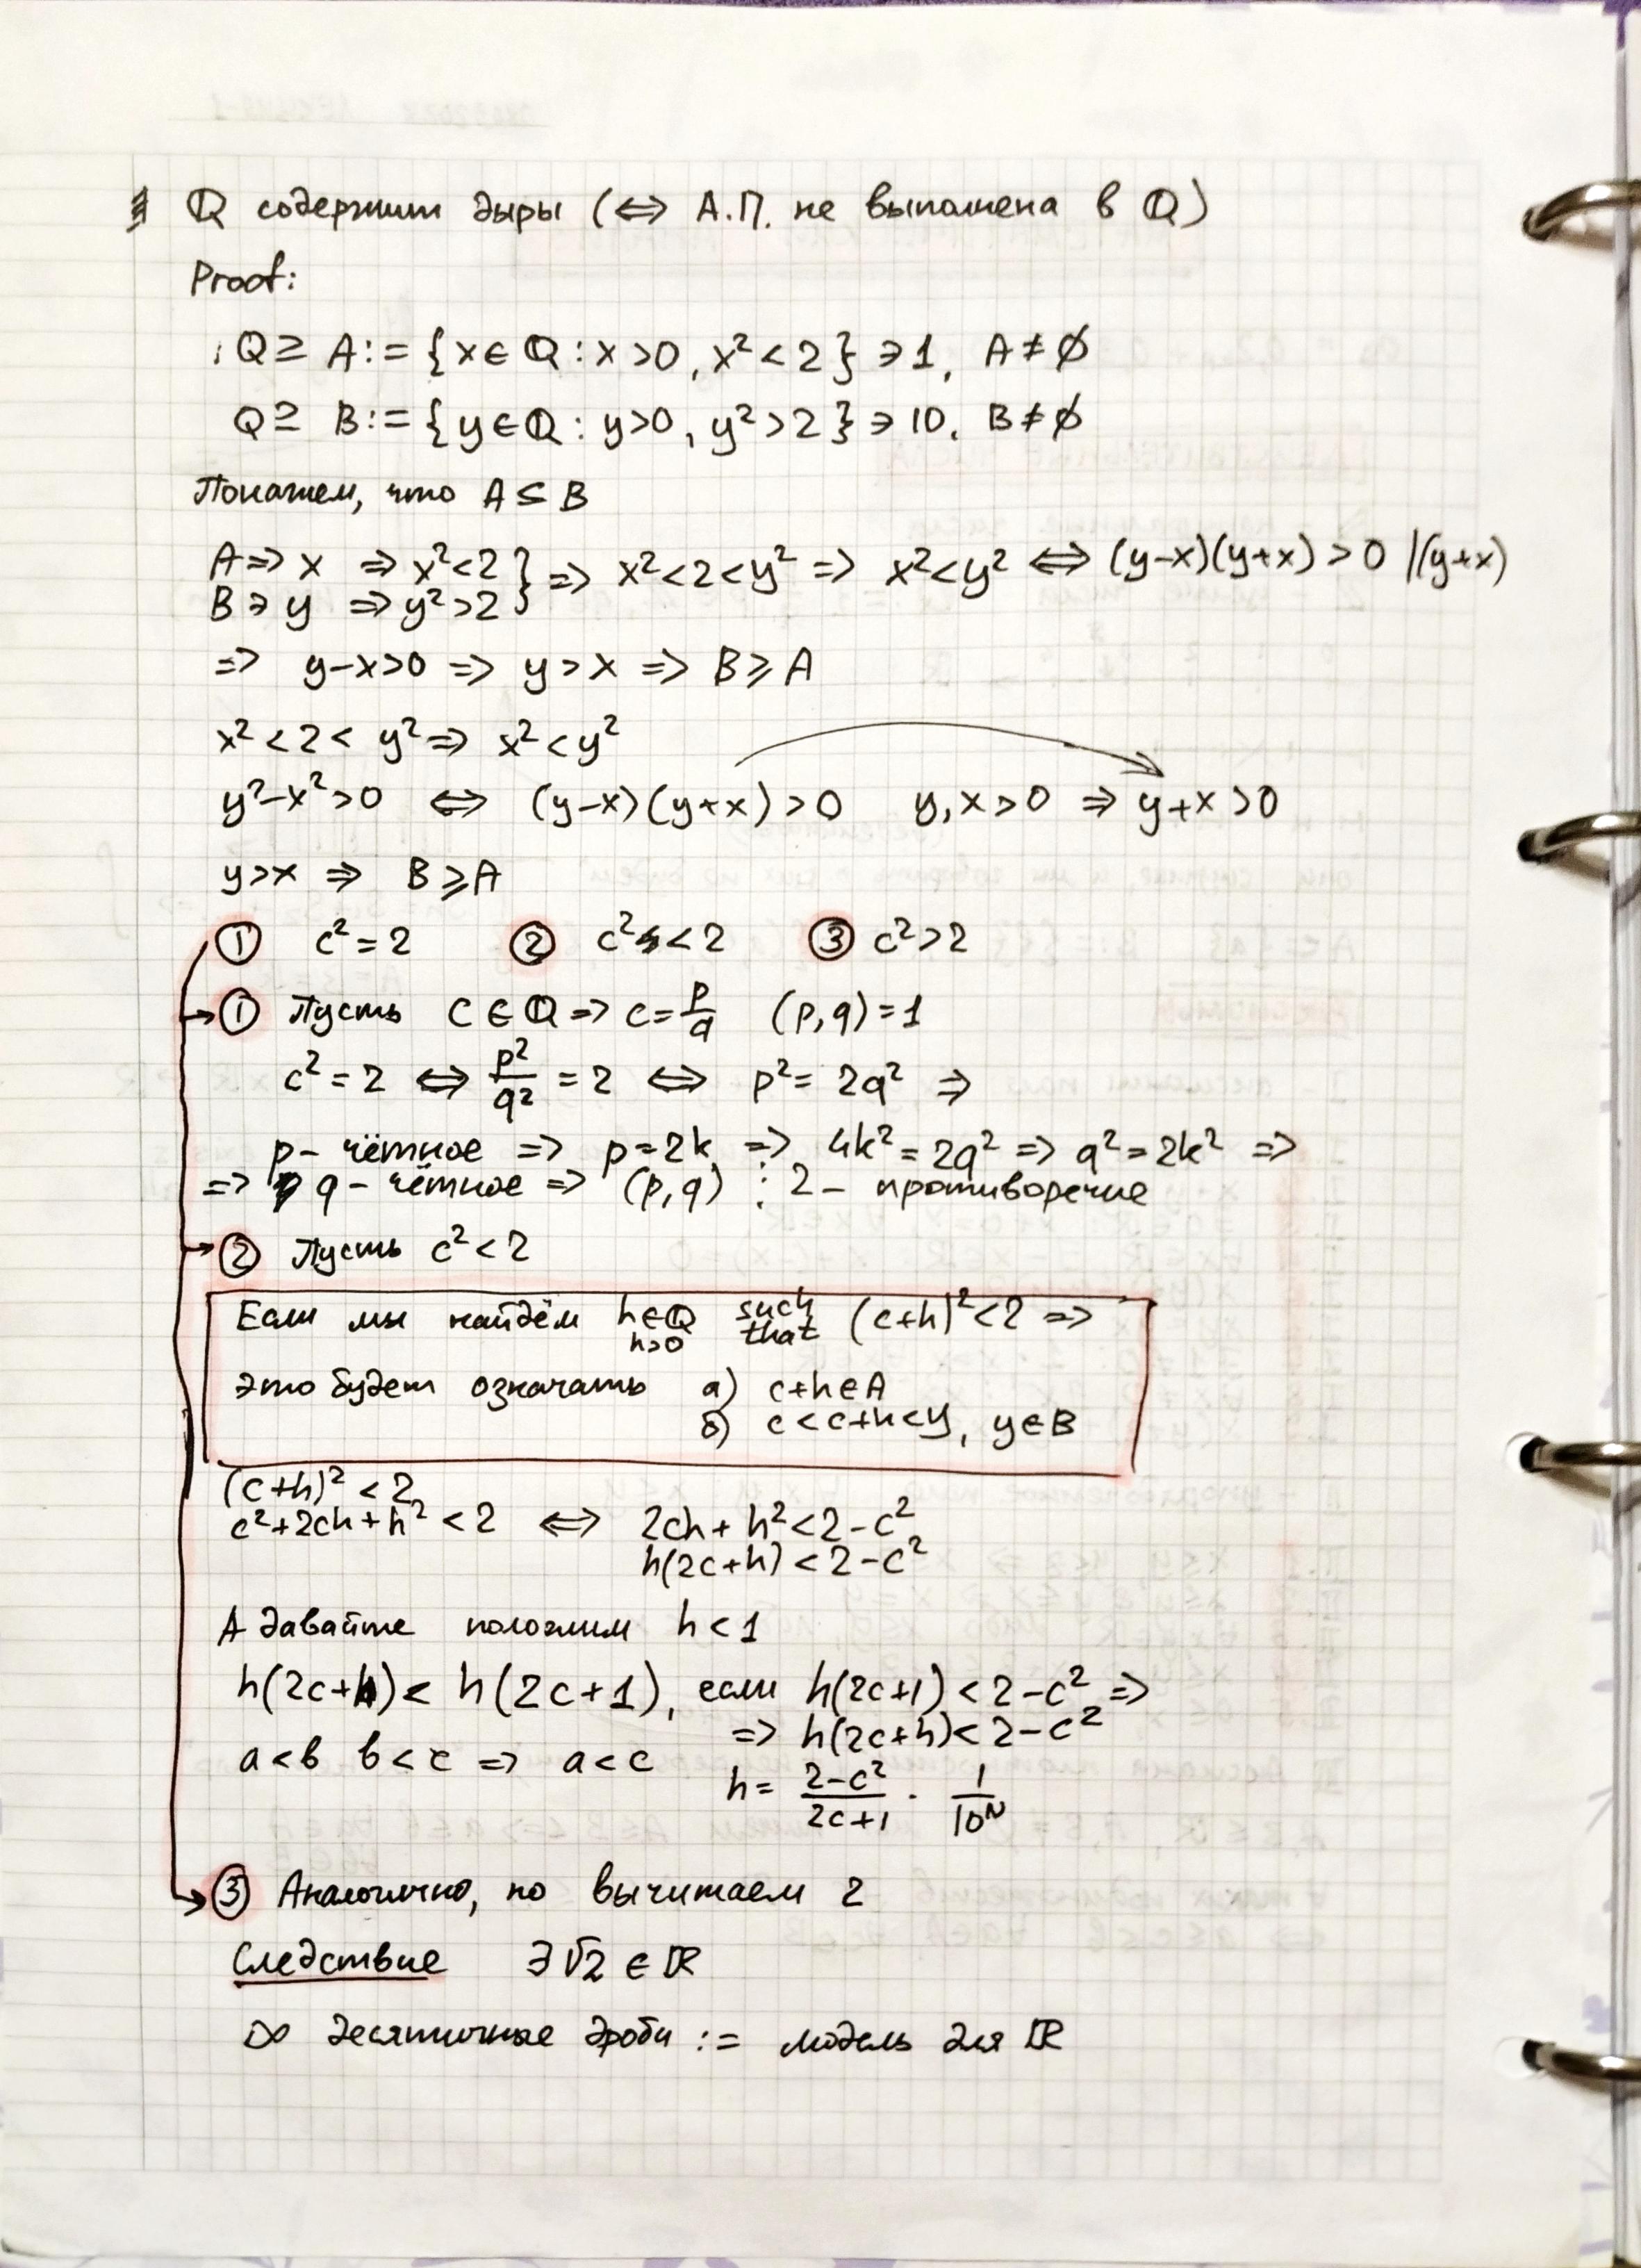 Q содержит дыры (⇔ А.П. не выполнена в Q)
Proof:
Q ⊇ A := {x ∈ Q : x > 0, x² < 2} ∋ 1, A ≠ ∅
Q ⊇ B := {y ∈ Q : y > 0, y² > 2} ∋ 10, B ≠ ∅
Покажем, что A ≤ B
A ∋ x ⇒ x² < 2 } ⇒ x² < 2 < y² ⇒ x² < y² ⇔ (y-x)(y+x) > 0 |(y+x)
B ∋ y ⇒ y² > 2
⇒ y-x>0 ⇒ y > x ⇒ B ⩾ A
x² < 2 < y² ⇒ x² < y²
y²-x²>0 ⇔ (y-x)(y+x) > 0 y,x > 0 ⇒ y+x > 0
y>x ⇒ B ⩾ A
① c² = 2 ② c² < 2 ③ c² > 2
→ ① Пусть c ∈ Q ⇒ c = p/q (p,q) = 1
c² = 2 ⇔ p²/q² = 2 ⇔ p² = 2q² ⇒
p - чётное ⇒ p = 2k ⇒ 4k² = 2q² ⇒ q² = 2k² ⇒
⇒ q - чётное ⇒ (p,q) ⋮ 2 - противоречие
→ ② Пусть c² < 2
Если мы найдём h∈Q such that (c+h)² < 2 ⇒
h>0
это будет означать а) c+h∈A
б) c < c+h < y, y∈B
(c+h)² < 2
c²+2ch+h² < 2 ⇔ 2ch + h² < 2-c²
h(2c+h) < 2-c²
А давайте положим h < 1
h(2c+h) < h(2c+1), если h(2c+1) < 2-c² ⇒
⇒ h(2c+h) < 2-c²
a<b b<c ⇒ a<c
h = (2-c²)/(2c+1) · 1/10ᴺ
→ ③ Аналогично, но вычитаем 2
Следствие ∃ √2 ∈ R
∞ десятичные дроби := модель для R